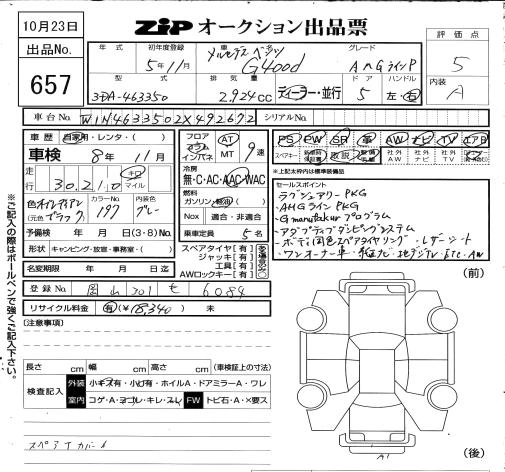 10月23日
ZIP オークション出品票
出品No.
657
年式 初年度登録 車名 グレード
5年11月 メルセデスベンツ G400d AMGラインP
評価点
5
内装
A
型式 排気量 ドア ハンドル
3DA-463350 2,924cc ディーラー・並行 5 左・右
車台No. W1N4633502X492672 シリアルNo.
車歴 自家用・レンタ・( )
車検 8年11月
走行 30,210 キロ マイル
色 オブシディアンブラック (元色 ) カラーNo. 197 内装色 グレー
予備検 年 月 日 (3・8)No.
形状 キャンピング・放宣・事務室・( )
名変期限 年 月 日迄
フロア コラム インパネ AT MT 9速
冷房 無・C・AC・AAC・WAC
燃料 ガソリン・軽油・( )
Nox 適合・非適合
乗車定員 5名
スペアタイヤ【有】
ジャッキ【有】
工具【有】
AWロックキー【有】
ある場合のみ〇
PS PW SR 革 AW ナビ TV エアB
スペアキー 新車時保証書 取説 整備手帳 社外AW 社外ナビ 社外TV
※上記太枠内は標準装備品
セールスポイント
・ラグジュアリーPKG
・AMGラインPKG
・G manufakturプログラム
・アダプティブダンピングシステム
・ボディ同色スペアタイヤリング・レザーシート
・ワンオーナー車・純正ナビ・地デジTV・ETC・AW
登録No. 岡山 301 も 6084
リサイクル料金 有(¥18,340) 未
[注意事項]
長さ cm 幅 cm 高さ cm (車検証上の寸法)
検査記入 外装 小キズ有・小凹有・ホイルA・ドアミラーA・ワレ
室内 コゲ・A・ヨゴレ・キレ・スレ FW トビ石・A・×要ス
スペアTカバーA
(前)
(後)
A1
※ご記入の際はボールペンで強くご記入下さい。